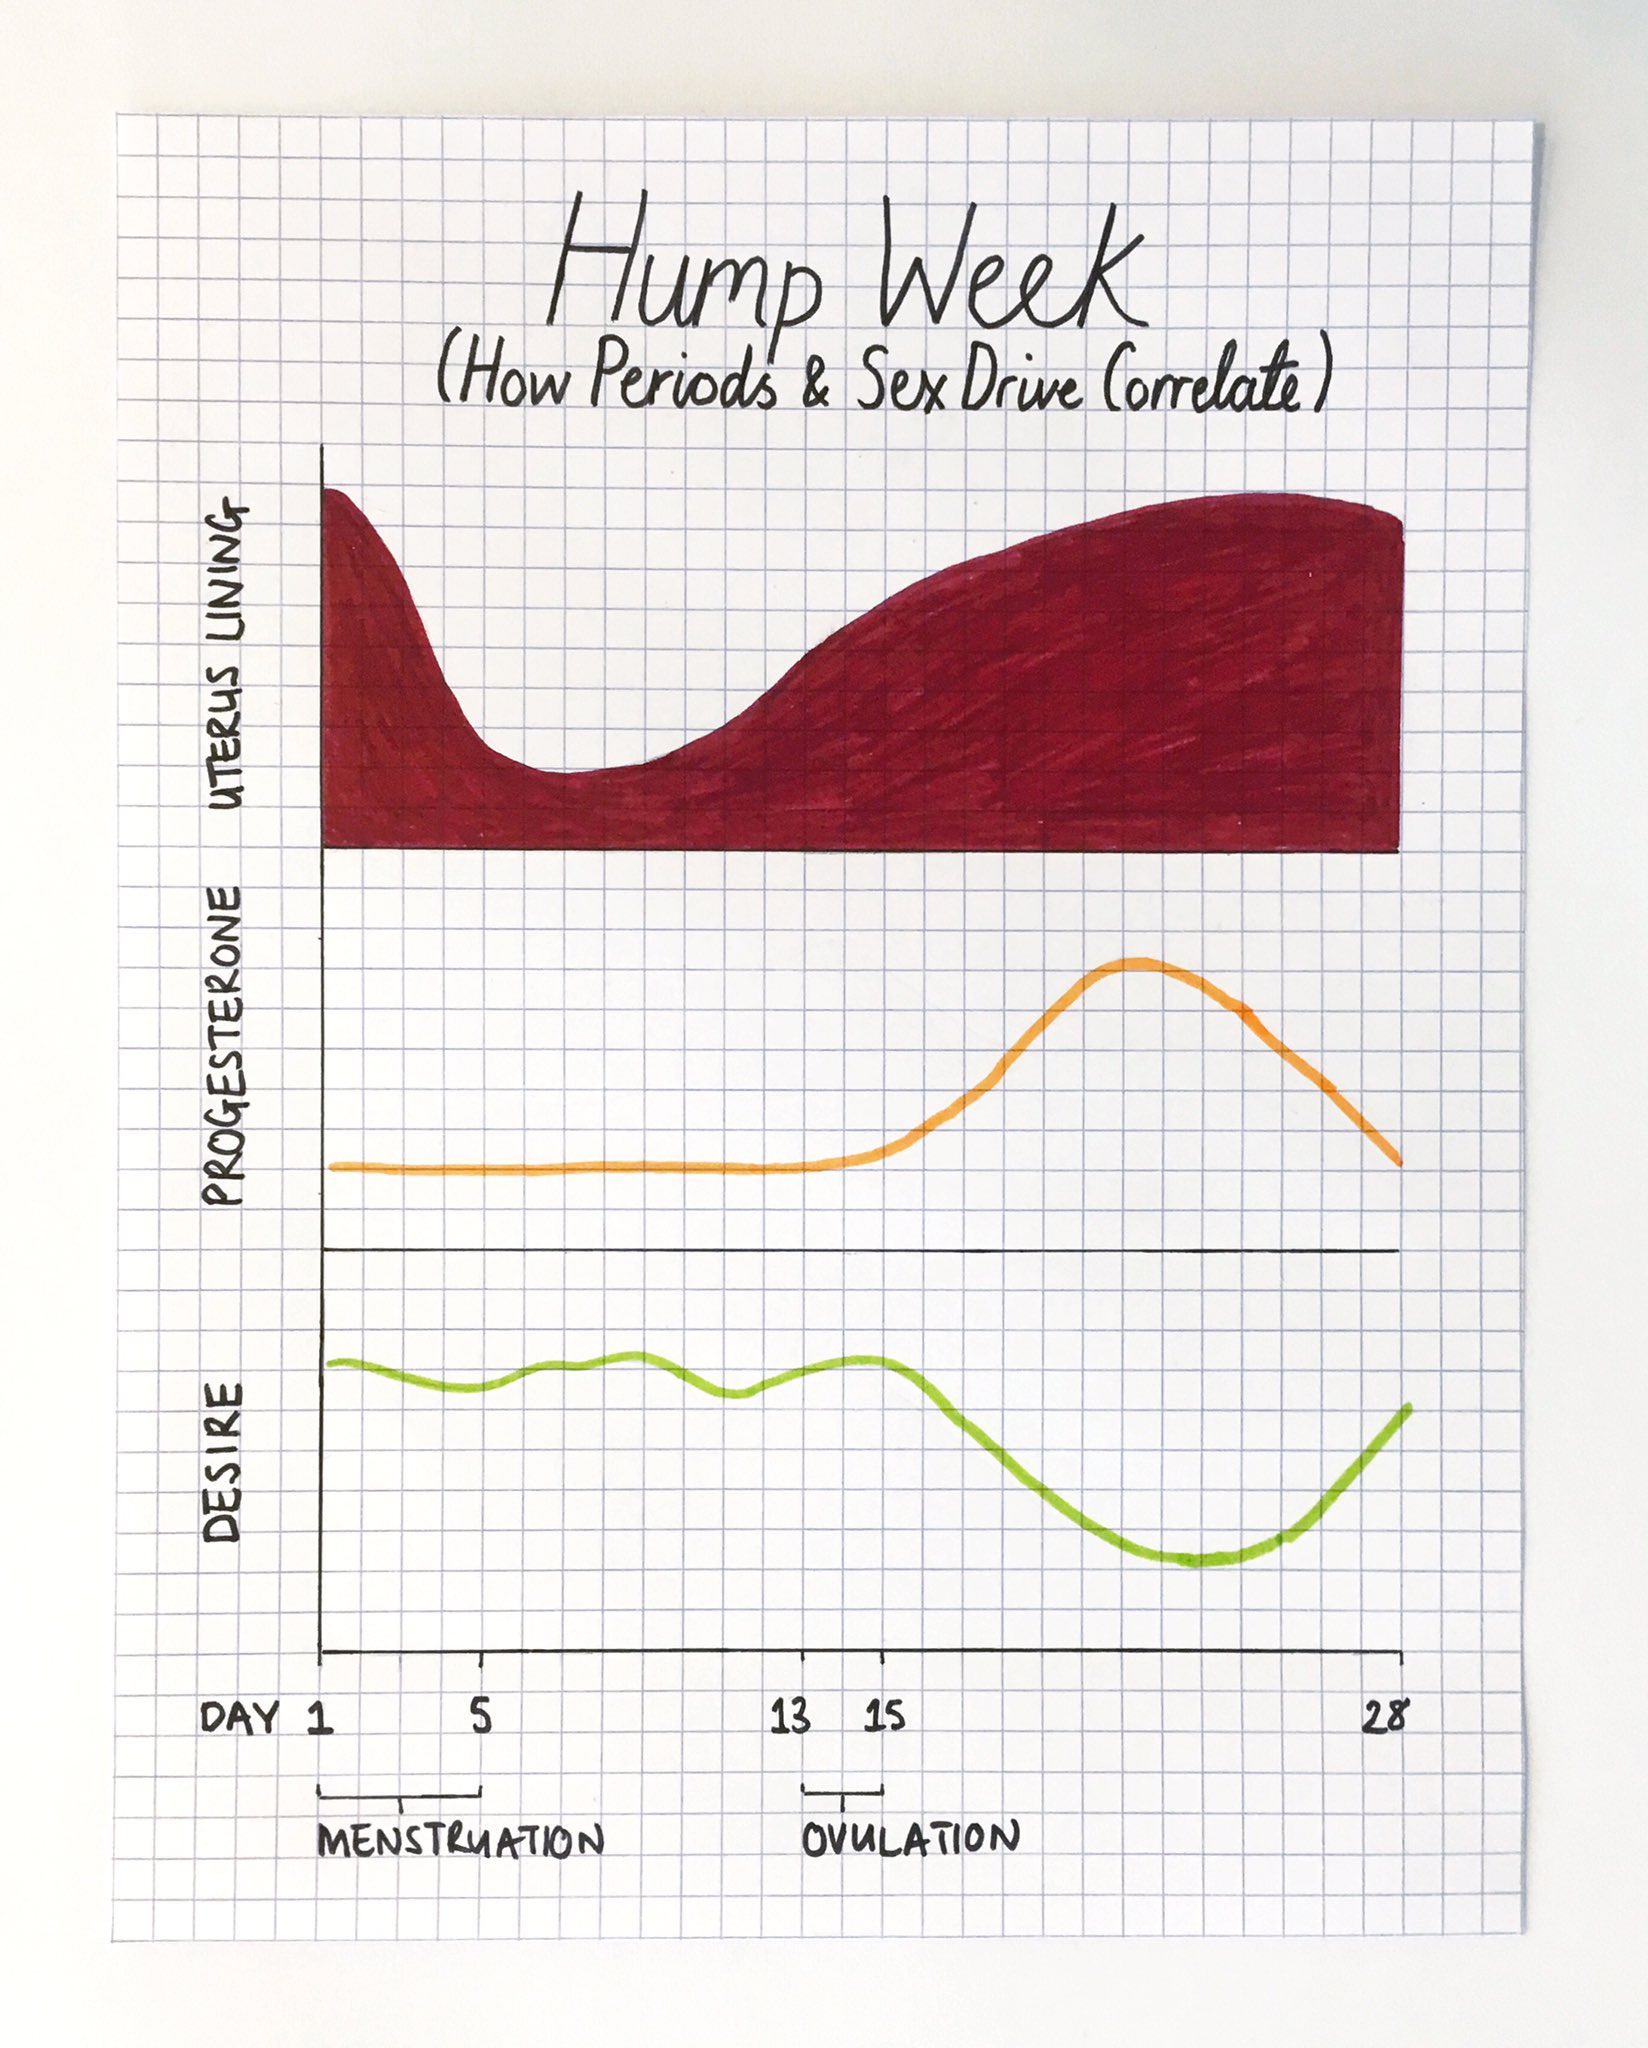 Hump Week
(How Periods & Sex Drive Correlate)
UTERUS LINING
PROGESTERONE
DESIRE
DAY 1 5 13 15 28
MENSTRUATION OVULATION